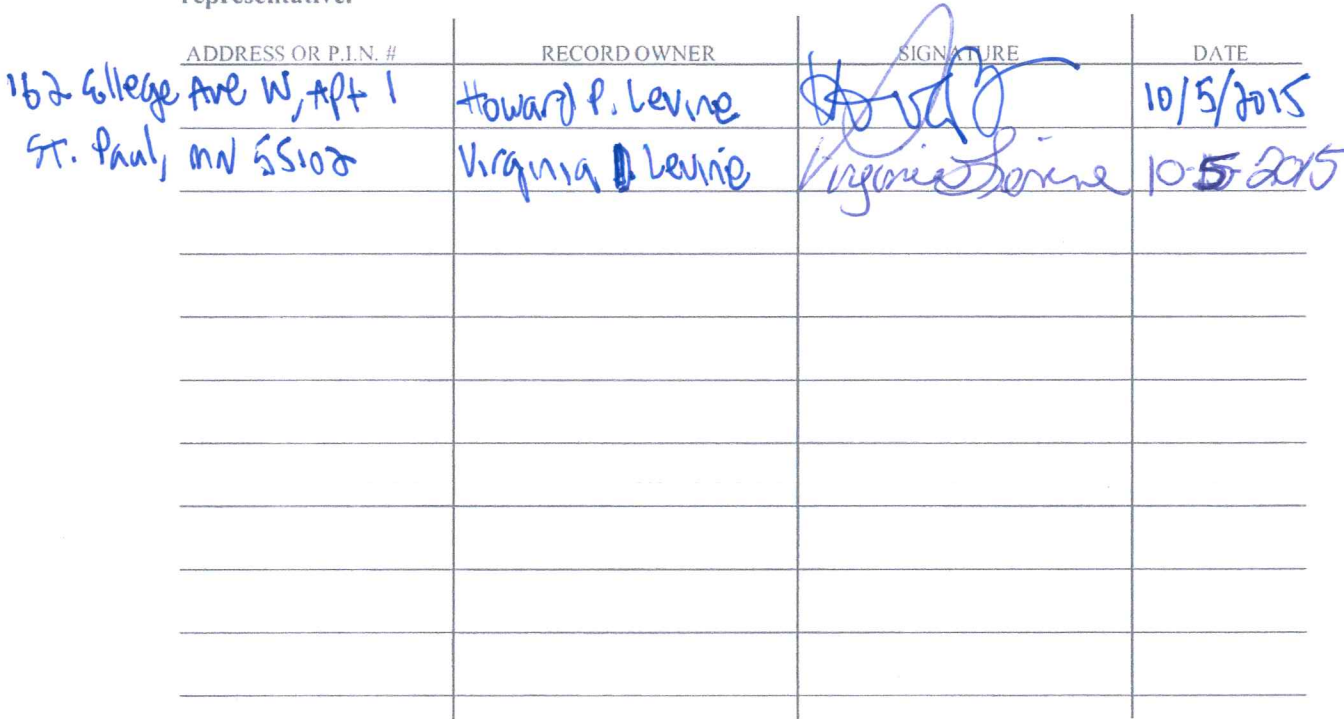 representative.
ADDRESS OR P.I.N. # RECORD OWNER SIGNATURE DATE
162 College Ave W, Apt 1 Howard P. Levine 10/5/2015
ST. Paul, MN 55102 Virginia Levine Virginia Levine 10-5-2015